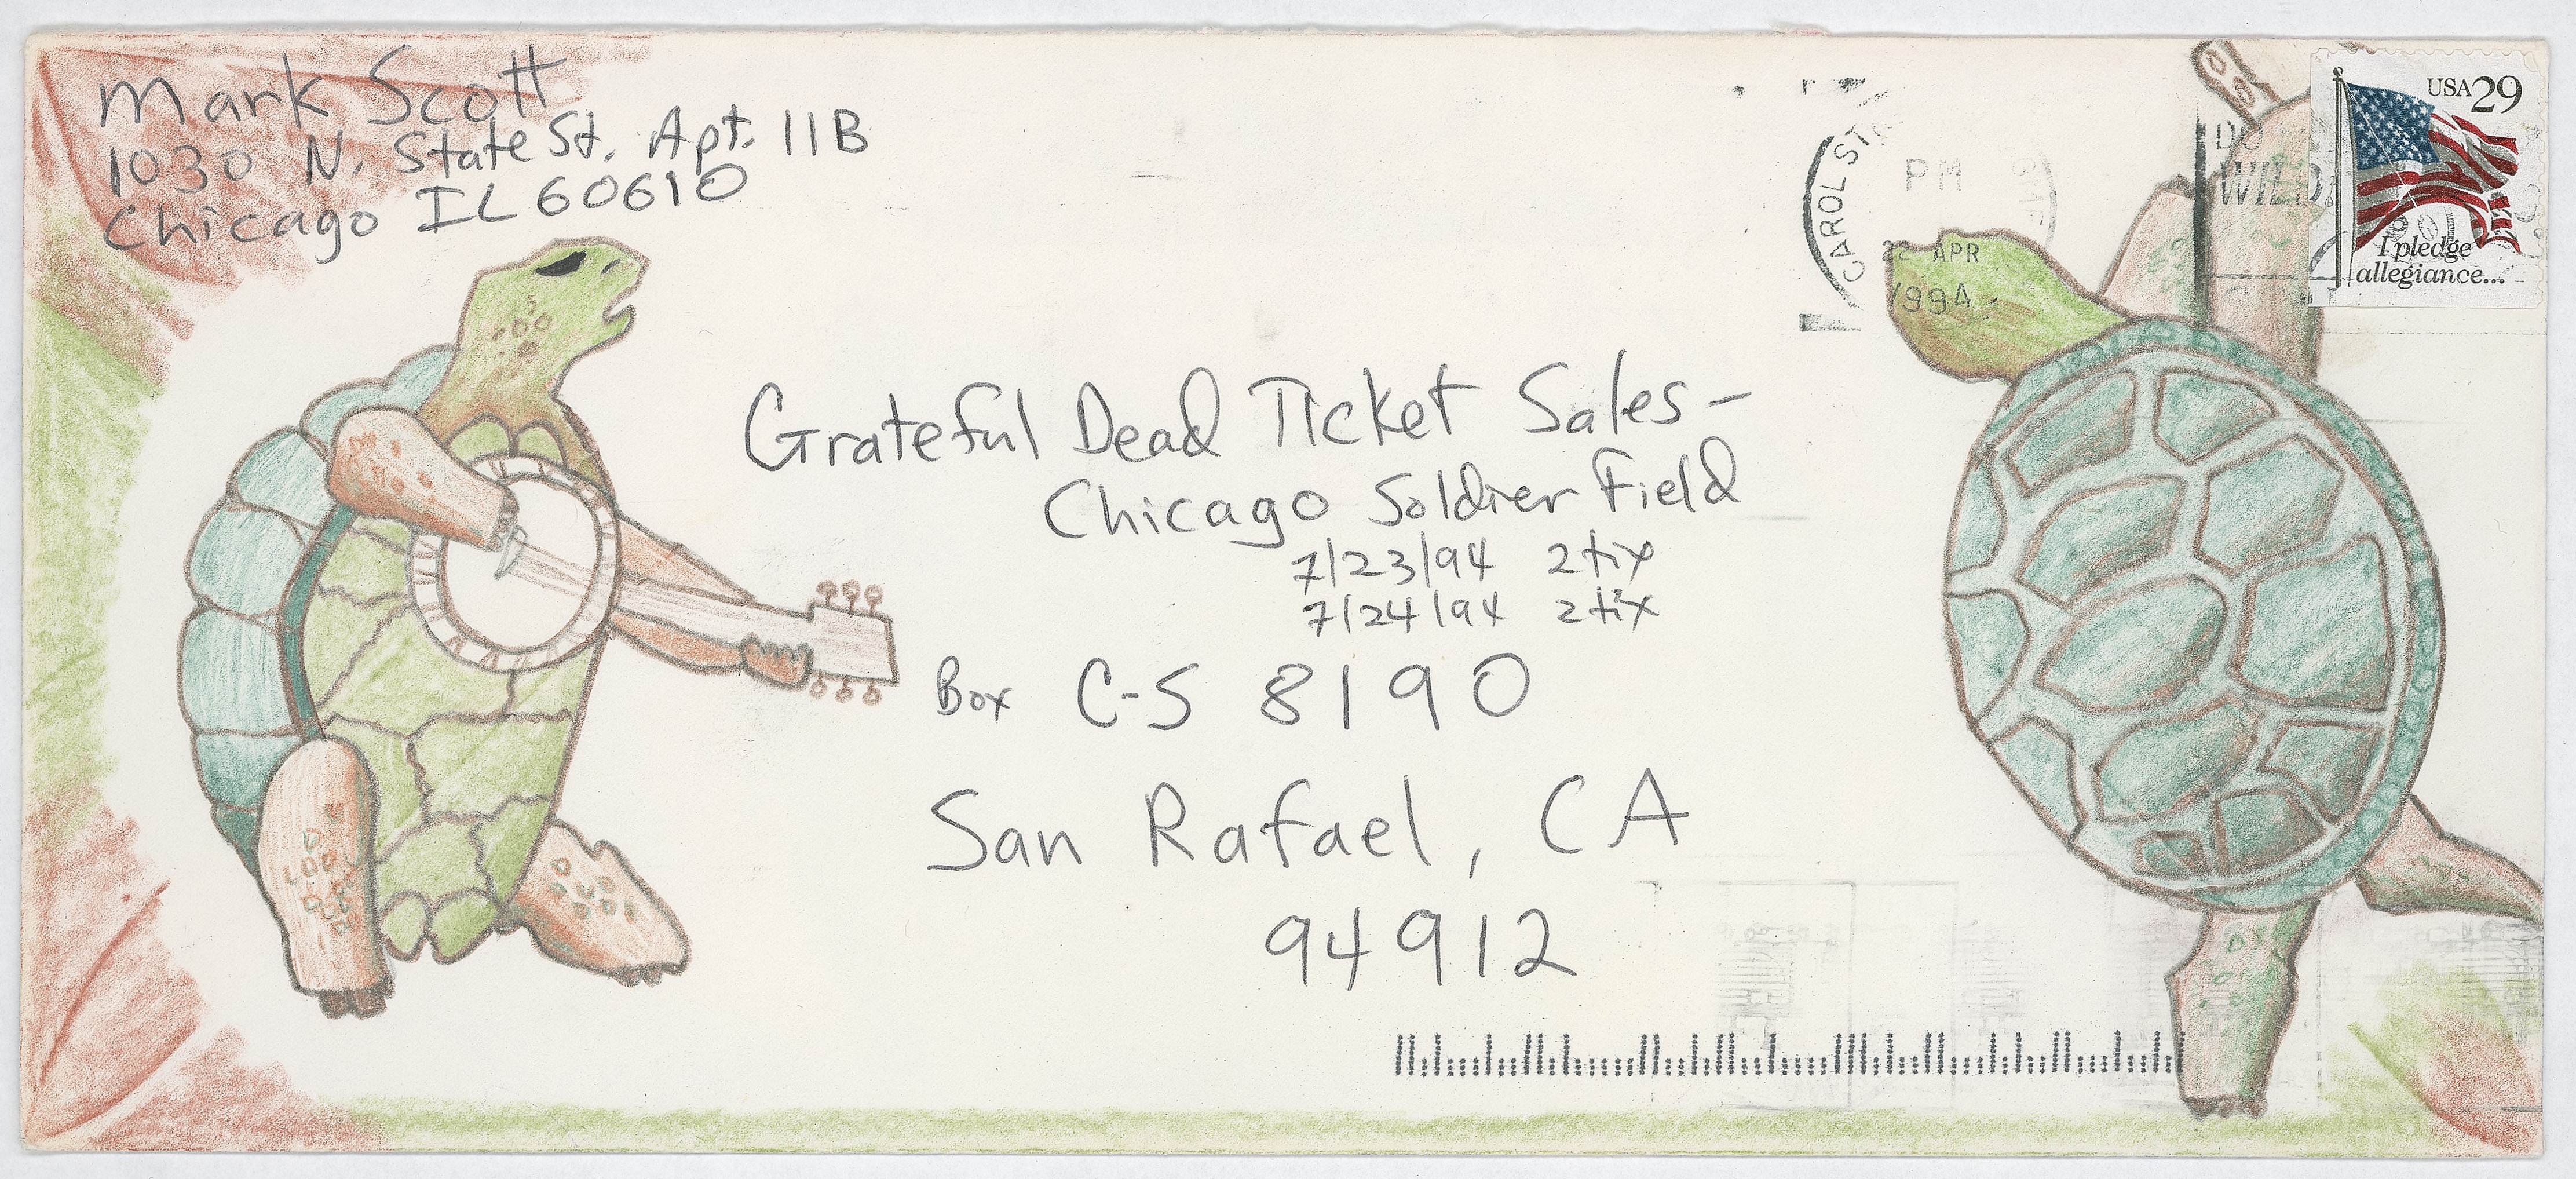 Mark Scott
1030 N. State St. Apt. 11B
Chicago IL 60610
CAROL ST
PM
22 APR
1994
DO
WILD
USA 29
I pledge
allegiance...
Grateful Dead Ticket Sales-
Chicago Soldier Field
7/23/94 2 tix
7/24/94 2 tix
Box C-S 8190
San Rafael, CA
94912